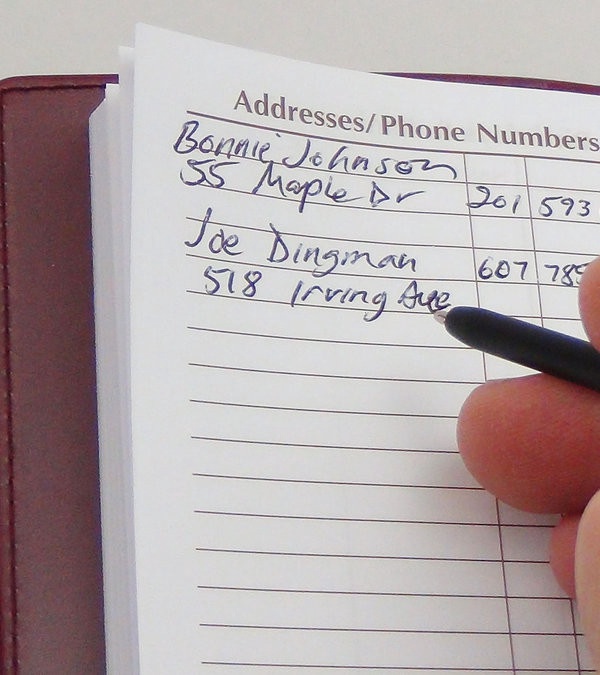 Addresses/Phone Numbers
Bonnie Johnson
55 Maple Dr 201 593
Joe Dingman 607 785
518 Irving Ave